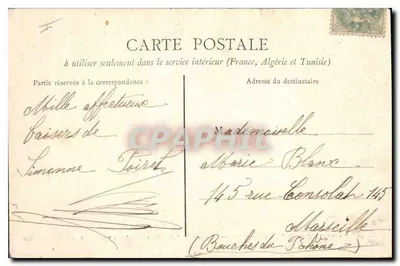 CARTE POSTALE
à utiliser seulement dans le service intérieur (France, Algérie et Tunisie)
Partie réservée à la correspondance :
Adresse du destinataire
Mille affectueux
baisers de
Simonne
Mademoiselle
Marie Blanc
145 rue Consolat 145
Marseille
(Bouches du Rhône)
CPAPHIL